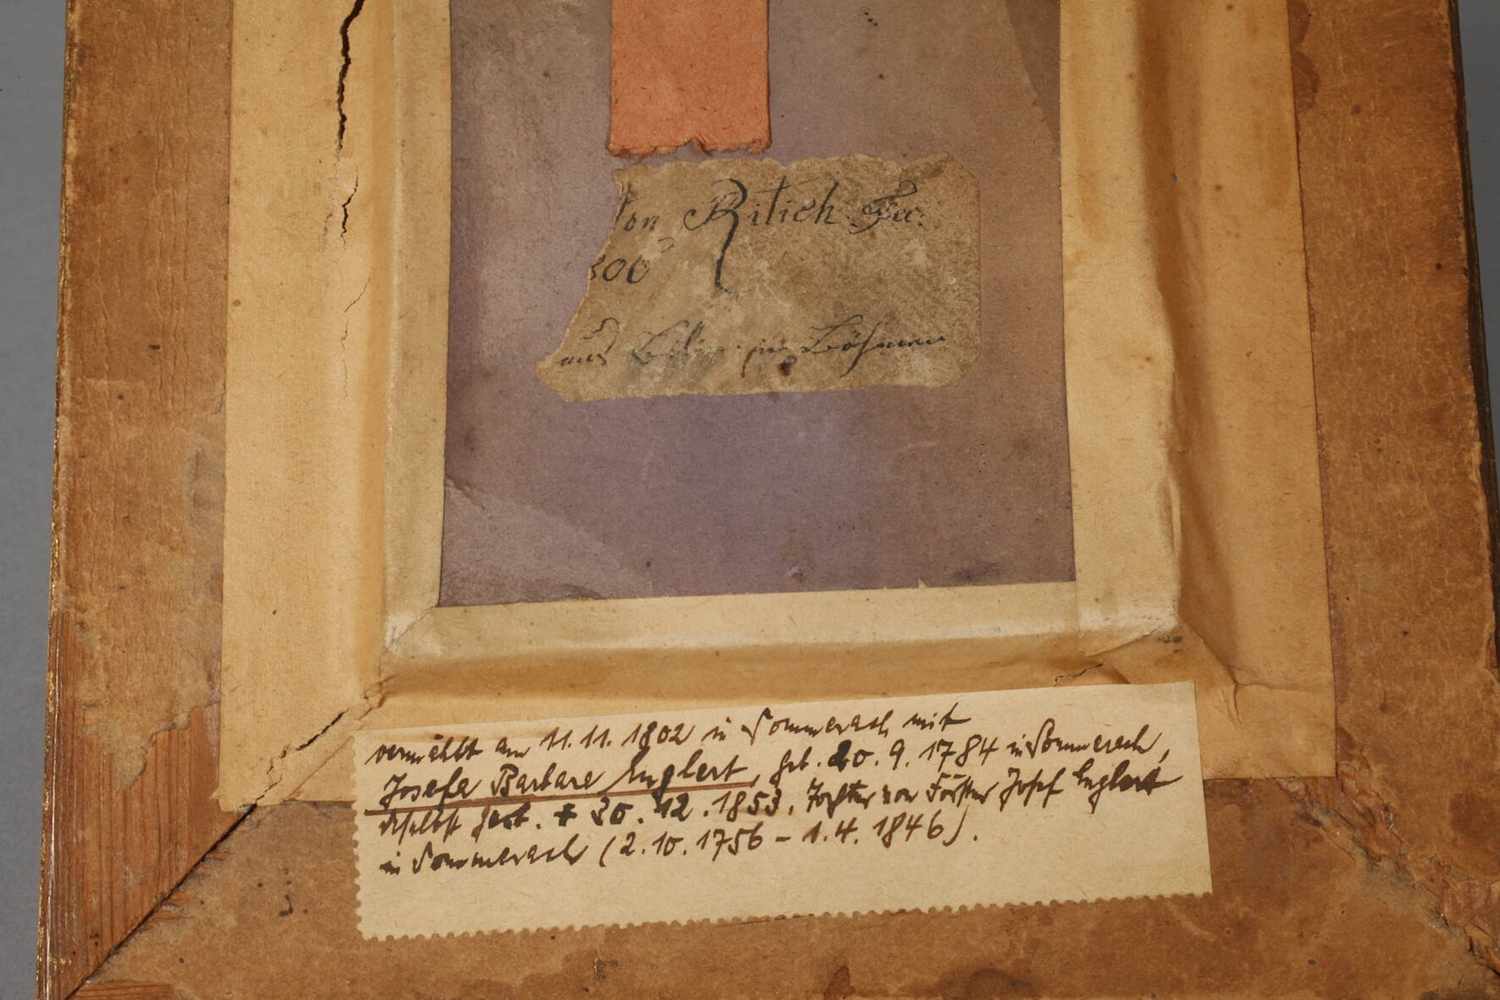 Von Ritich Fec:
800
aus Bilin in Böhmen
vermählt am 11.11.1802 in Sommerach mit
Josefa Barbara Englert, geb. 20.9.1784 in Sommerach,
daselbst gest. + 30.12.1853. Tochter von Förster Josef Englert
in Sommerach (2.10.1756 - 1.4.1846).